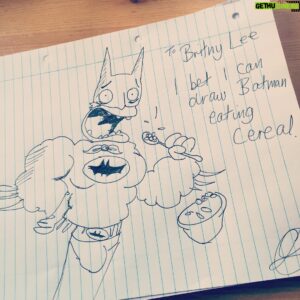 GETHU
To Britny Lee
I bet I can
draw Batman
eating
Cereal
!